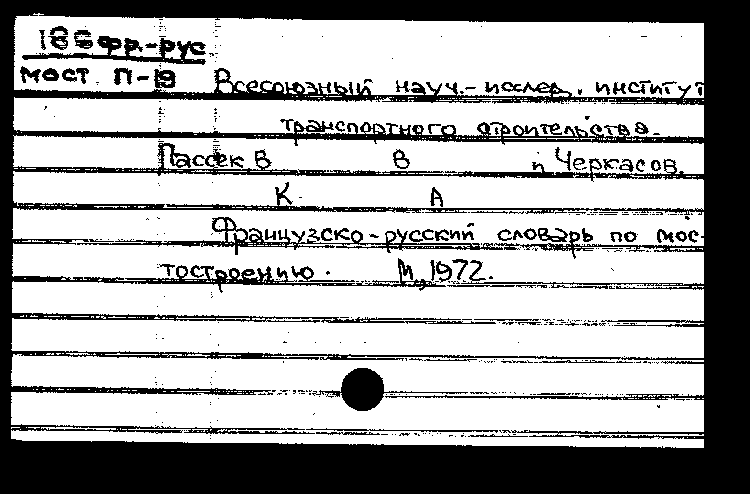 186 фр.-рус
мост П-19 Всесоюзный науч.-исслед. институт
транспортного строительства.
Пассек, В В п Черкасов.
К А
Французско-русский словарь по мос-
тостроению. М., 1972.